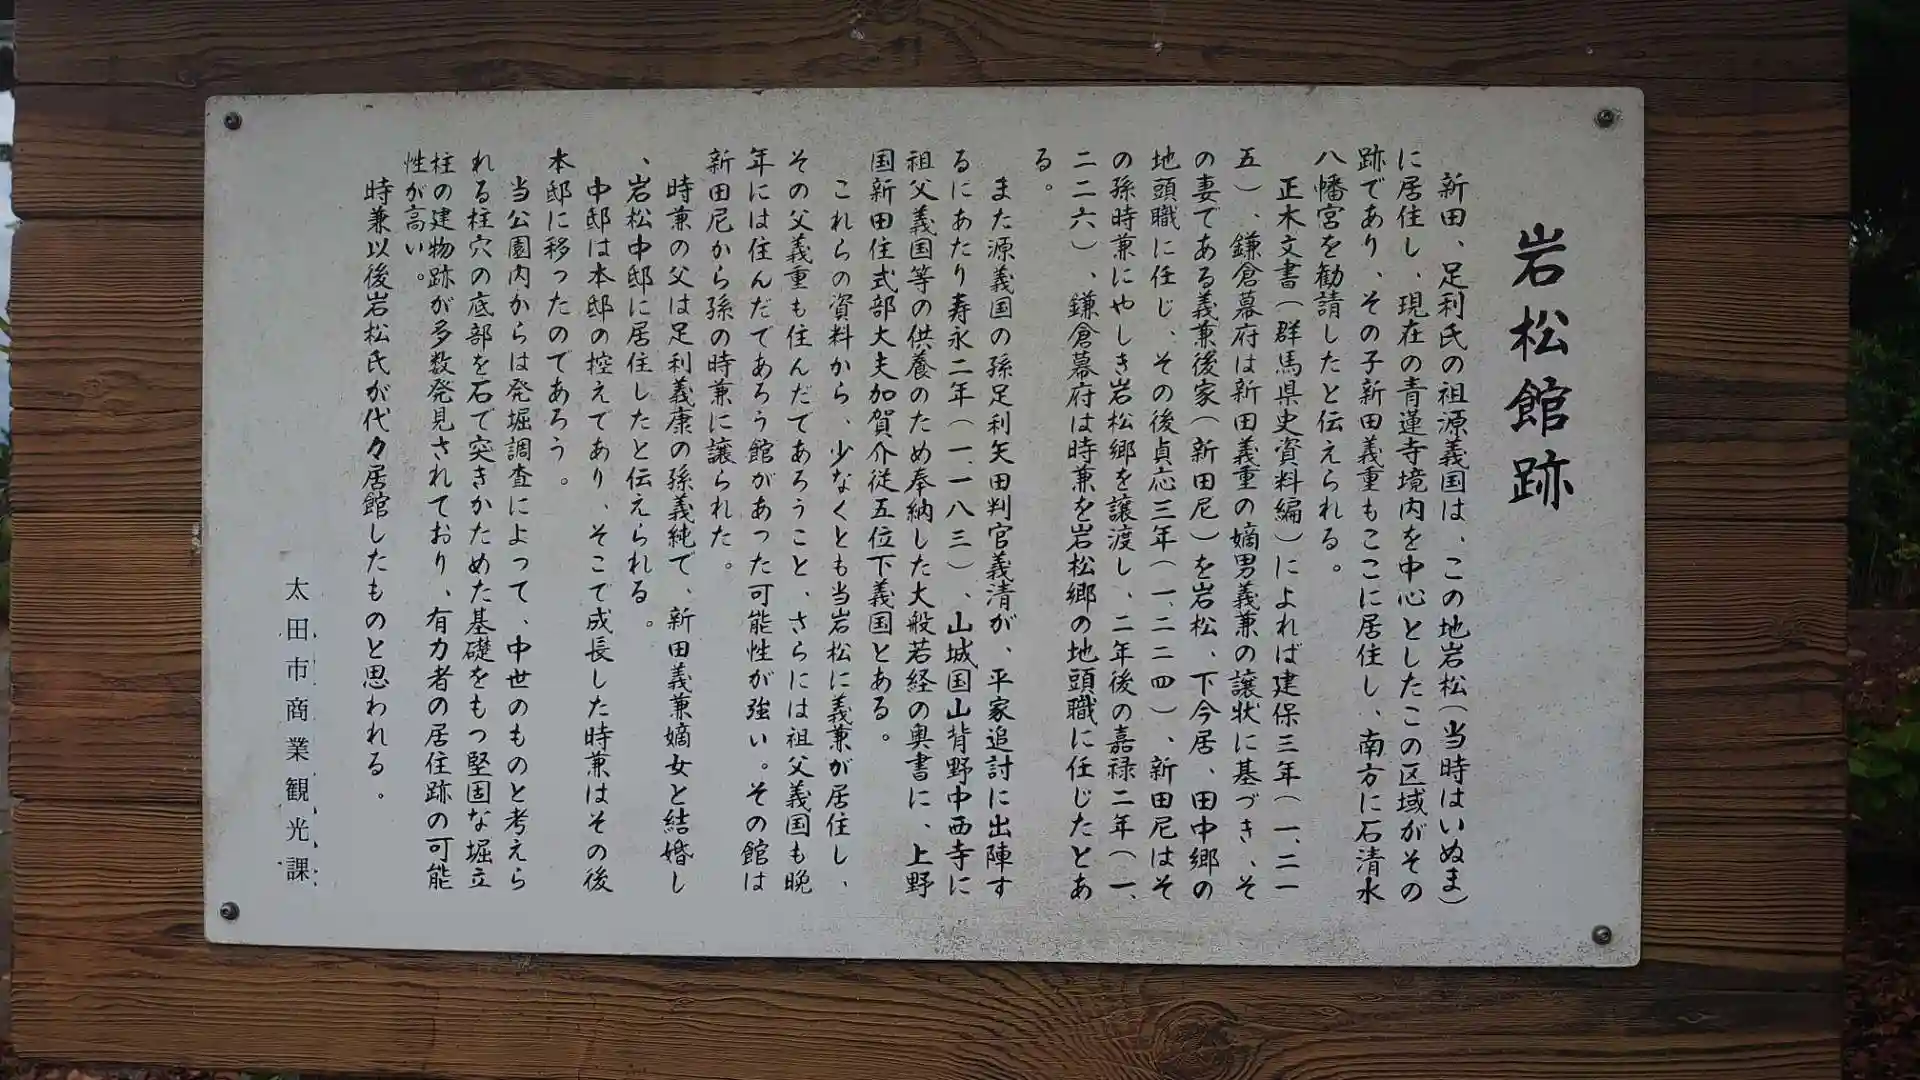 岩松館跡
新田、足利氏の祖源義国は、この地岩松(当時はいぬま)
に居住し、現在の青蓮寺境内を中心としたこの区域がその
跡であり、その子新田義重もここに居住し、南方に石清水
八幡宮を勧請したと伝えられる。
正木文書(群馬県史資料編)によれば建保三年(一、二一
五)、鎌倉幕府は新田義重の嫡男義兼の譲状に基づき、そ
の妻である義兼後家(新田尼)を岩松、下今居、田中郷の
地頭職に任じ、その後貞応三年(一、二二四)、新田尼はそ
の孫時兼にやしき岩松郷を譲渡し、二年後の嘉禄二年(一、
二二六)、鎌倉幕府は時兼を岩松郷の地頭職に任じたとあ
る。
また源義国の孫足利矢田判官義清が、平家追討に出陣す
るにあたり寿永二年(一、一八三)、山城国山背野中西寺に
祖父義国等の供養のため奉納した大般若経の奥書に、上野
国新田住式部大夫加賀介従五位下義国とある。
これらの資料から、少なくとも当岩松に義兼が居住し、
その父義重も住んだであろうこと、さらには祖父義国も晩
年には住んだであろう館があった可能性が強い。その館は
新田尼から孫の時兼に譲られた。
時兼の父は足利義康の孫義純で、新田義兼嫡女と結婚し
、岩松中邸に居住したと伝えられる。
中邸は本邸の控えであり、そこで成長した時兼はその後
本邸に移ったのであろう。
当公園内からは発堀調査によって、中世のものと考えら
れる柱穴の底部を石で突きかためた基礎をもつ堅固な堀立
柱の建物跡が多数発見されており、有力者の居住跡の可能
性が高い。
時兼以後岩松氏が代々居館したものと思われる。
太田市商業観光課